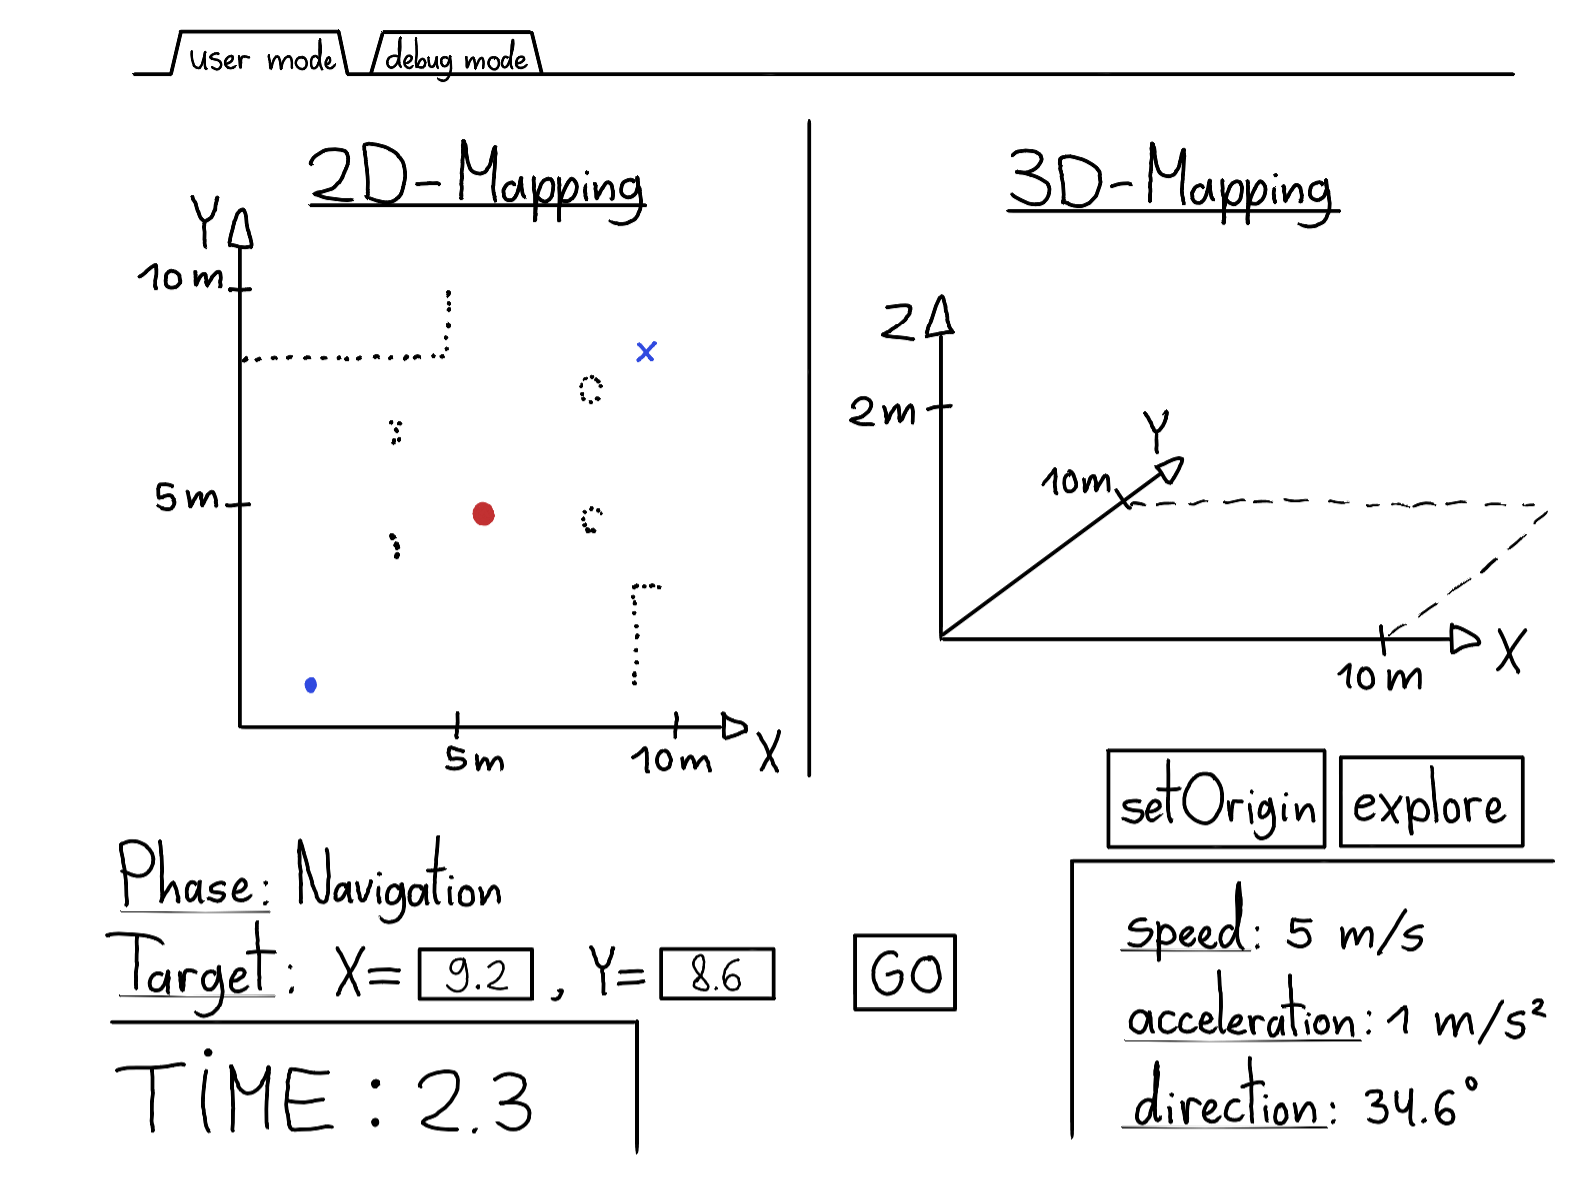 user mode debug mode
2D-Mapping
Y
10 m
5 m
5 m 10 m X
3D-Mapping
Z
2 m
Y
10 m
X
10 m
setOrigin explore
Phase: Navigation
Target: X= 9.2 , Y= 8.6 GO
TiME: 2.3
speed: 5 m/s
acceleration: 1 m/s²
direction: 34.6°